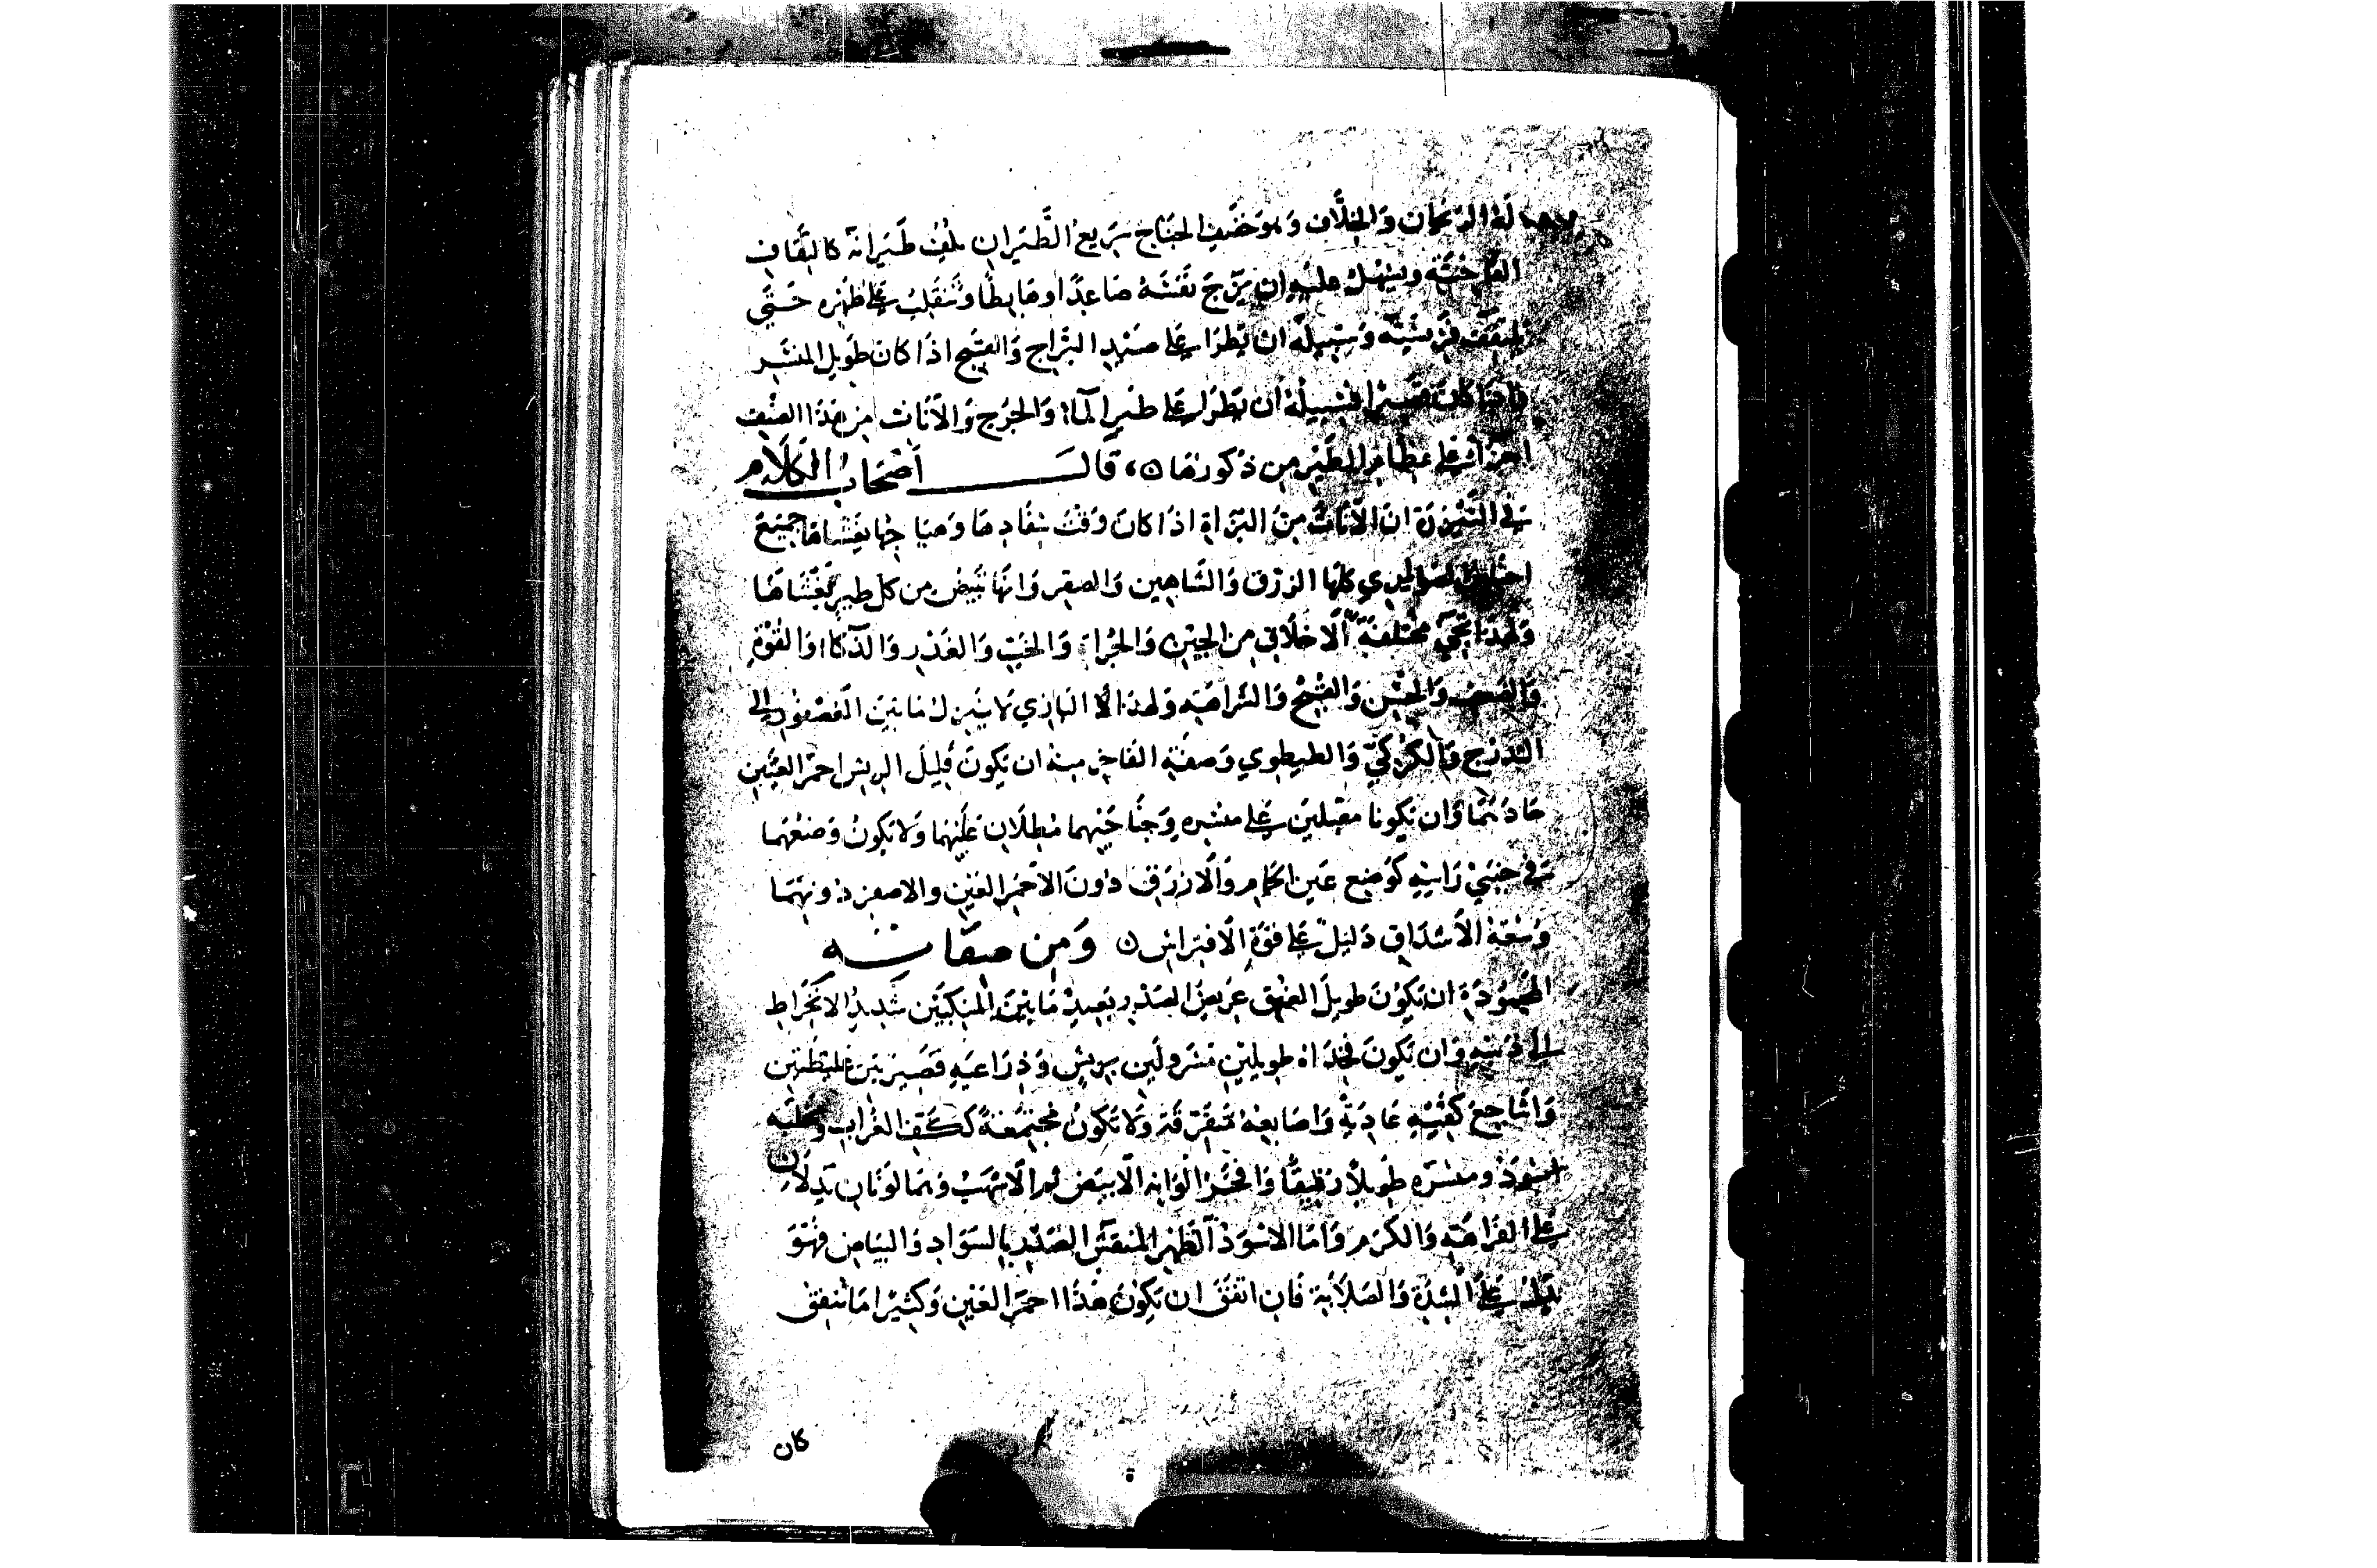 له الرعان والخلاف وهو خفيف الجناح سريع الطيران يلف طيرانه كالتفاف
الفاختة ويسهل عليه ان يزج نفسه صاعدا وهابطا وتنقلب على ظهره حتى
يلتقف فريسته وسبيله ان يطرا على صيد الدراج والقبج اذا كان طويل المنسر
فاذا كان قصيرا فسبيله أن يطرا على طير الماء والجرج والاناث من هذا الصنف
اجرا على عظام الطير من ذكورها ه قالـــــــــ أصحاب الكلام
في البيزرة ان الاناث من البزاة اذا كان وقت سفادها وهياجها يغشاها جميع
اجناس الضواري كلها الزرق والشاهين والصقر وانها تبيض من كل طير يغشاها
ولهذا تجي مختلفة الاخلاق من الجبن والجراة والخب والغدر والذكاء والقوة
والضعف والحسن والقبح والشراهية ولهذا البازي لا ينزل ما بين العصفور الى
التدرج والكركي والطيطوي وصفة الفاخر منه ان يكون قليل الريش احمر العينين
حادتهما وان يكونا مقبلين على منسره وحجاجيهما مطلان عليهما ولا يكون وضعهما
في جنبي راسه كوضع عين الحمام والازرق دون الاحمر العين والاصفر دونهما
وسعة الاشداق دليل على قوة الافتراس ه ومن صفاتــــه
المحمودة ان يكون طويل العنق عريض الصدر بعيد ما بين المنكبين شديد الانخراط
الى ذنبه وان يكون فخذاه طويلين مسرولين بريش وذراعيه قصيرتين غليظتين
واشاجع كفيه عارية واصابعه متفرقة ولا تكون مجتمعة ككف الغراب ومخلبه
اسود ومنسره طويلا رقيقا وافخر الوانه الابيض ثم الاشهب وهما لونان يدلان
على الفراهة والكرم واما الاسود الظهر المنقش الصدر بالسواد والبياض فهو
يدل على الشدة والصلابة فان اتفق ان يكون هذا احمر العين وكثيرا ما تتفق
كان